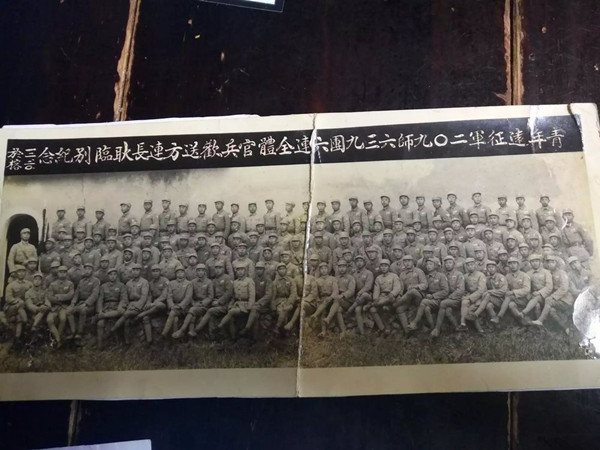 青年遠征軍二〇九師六三九團六連全體官兵歡送方連長耿臨別紀念